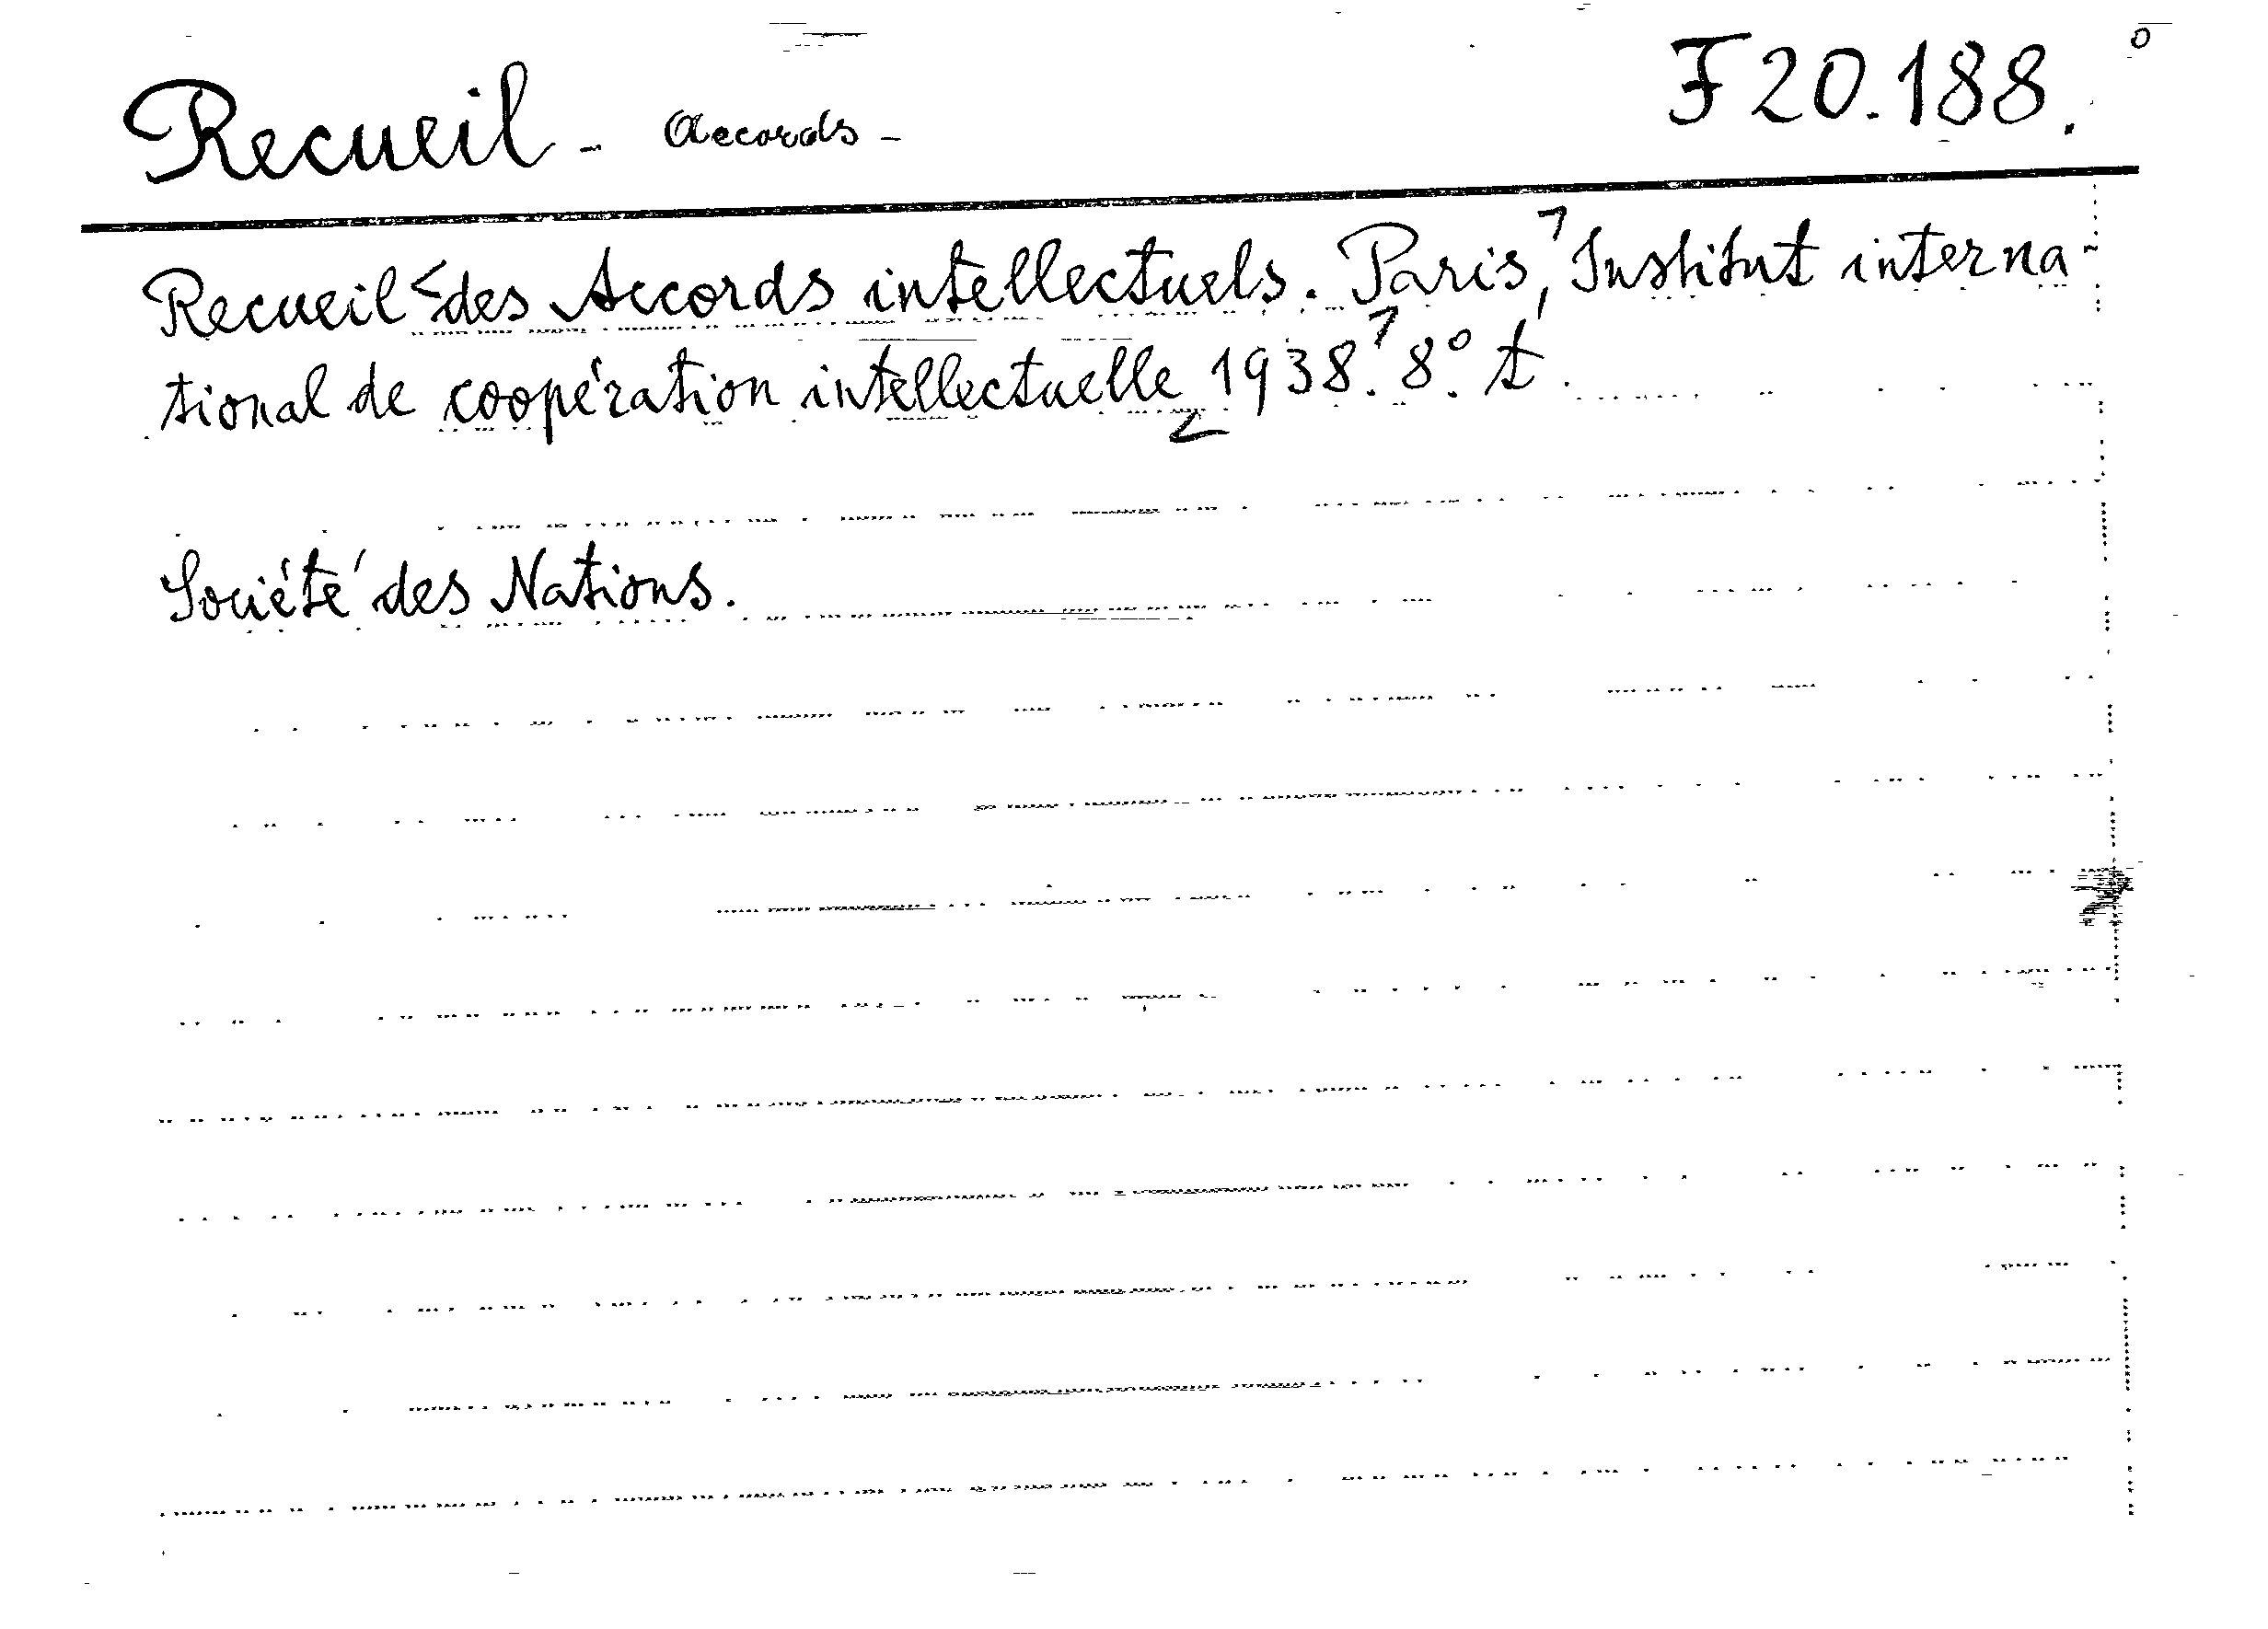 Recueil - Accords - F 20.188.
Recueil < des Accords intellectuels. Paris, Institut interna-
tional de coopération intellectuelle 1938. 8° t.
Société des Nations.